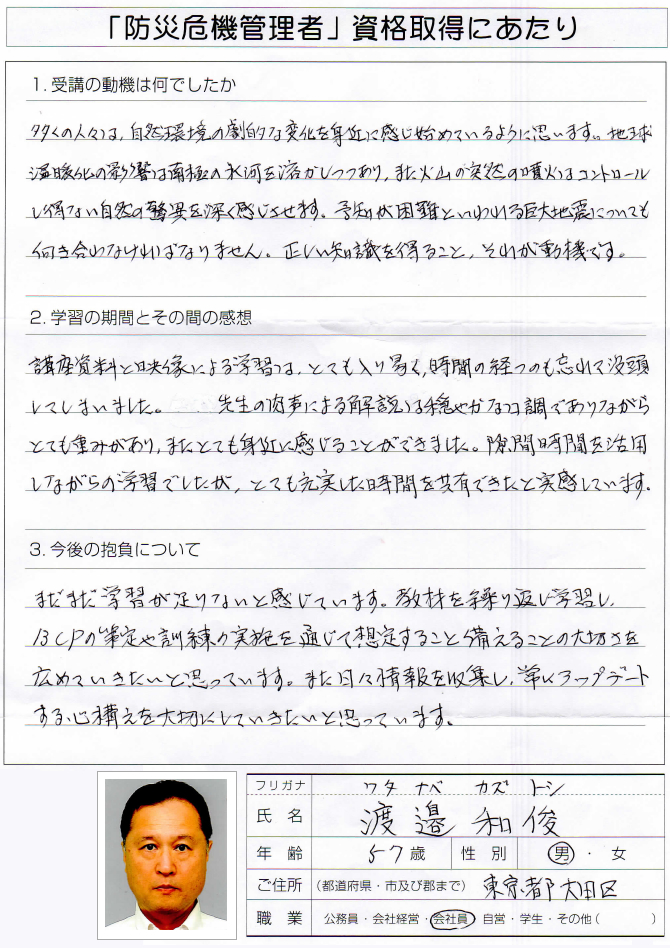 「防災危機管理者」資格取得にあたり
1. 受講の動機は何でしたか
多くの人々は、自然環境の劇的な変化を身近に感じ始めているように思います。地球
温暖化の影響は南極の氷河を溶かしつつあり、また火山の突然の噴火はコントロール
し得ない自然の驚異を深く感じさせます。予知が困難といわれる巨大地震についても
向き合わなければなりません。正しい知識を得ること、それが動機です。
2. 学習の期間とその間の感想
講座資料と映像による学習は、とても入り易く、時間の経つのも忘れて没頭
してしまいました。 先生の肉声による解説は穏やかな口調でありながら
とても重みがあり、またとても身近に感じることができました。隙間時間を活用
しながらの学習でしたが、とても充実した時間を共有できたと実感しています。
3. 今後の抱負について
まだまだ学習が足りないと感じています。教材を繰り返し学習し、
BCPの策定や訓練の実施を通じて想定すること備えることの大切さを
広めていきたいと思っています。また日々情報を収集し、常にアップデート
する心構えを大切にしていきたいと思っています。
フリガナ ワタナベ カズトシ
氏名 渡邉和俊
年齢 57歳 性別 男・女
ご住所 (都道府県・市及び郡まで) 東京都大田区
職業 公務員・会社経営・会社員・自営・学生・その他( )